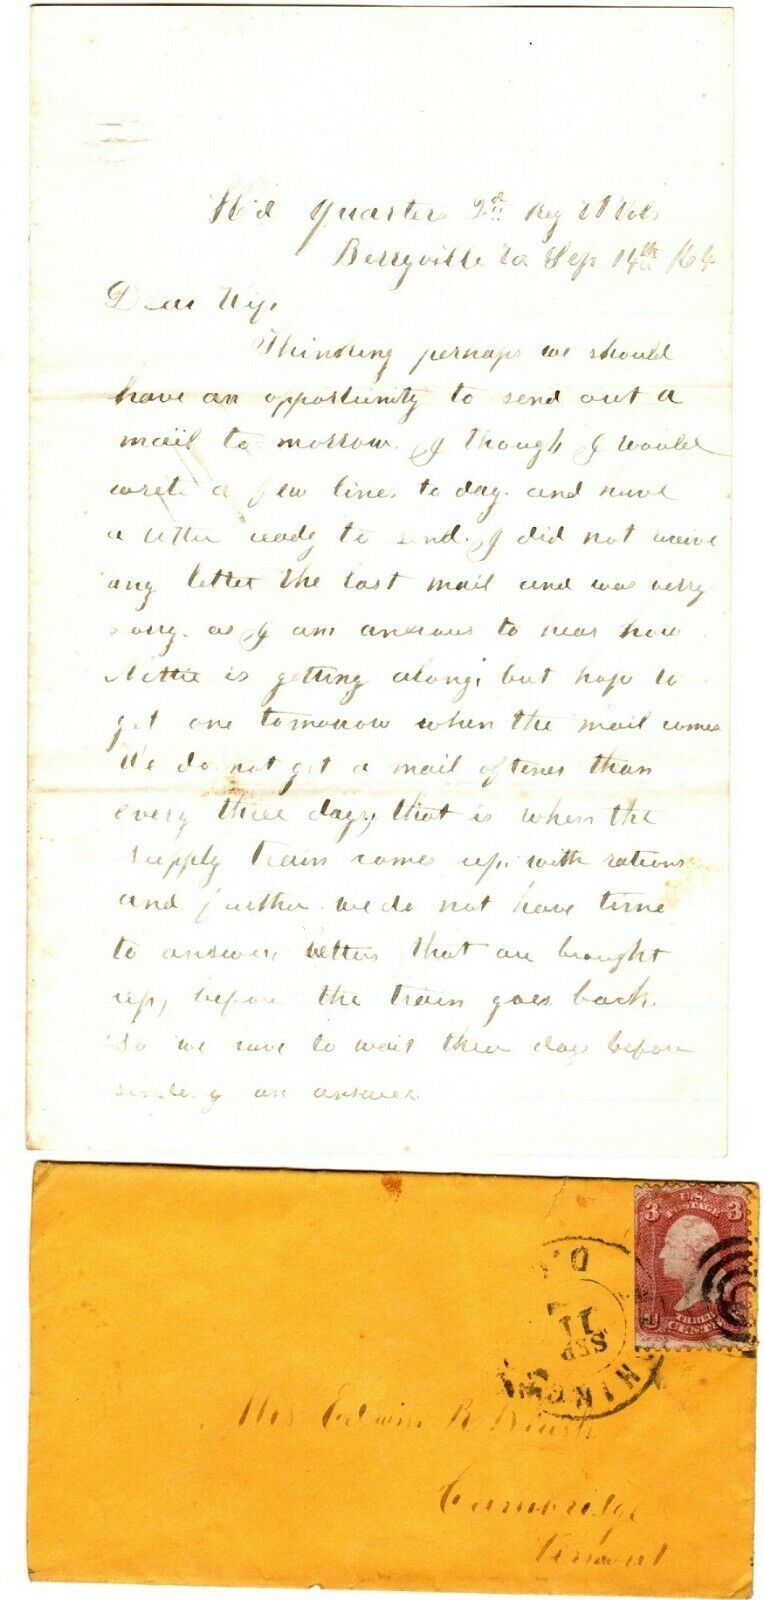 Hd Quarters 2nd Reg Vt Vols
Berryville Va Sep 14th 64
Dear Wife
Thinking perhaps we should
have an opportunity to send out a
mail to morrow. I though I would
write a few lines to day. and have
a letter ready to send. I did not receive
any letter the last mail and was verry
sorry. as I am anxious to hear how
Nettie is getting along, but hope to
get one tomorrow when the mail comes
We do not get a mail oftener than
every three days, that is when the
supply train comes up, with rations
and further we do not have time
to answer, letters that are brought
up, before the train goes back.
So we have to wait three days before
sending an answer.
U.S. POSTAGE
3 3
THREE CENTS
SEP
Mrs Edwin R
Cambridge
Vermont